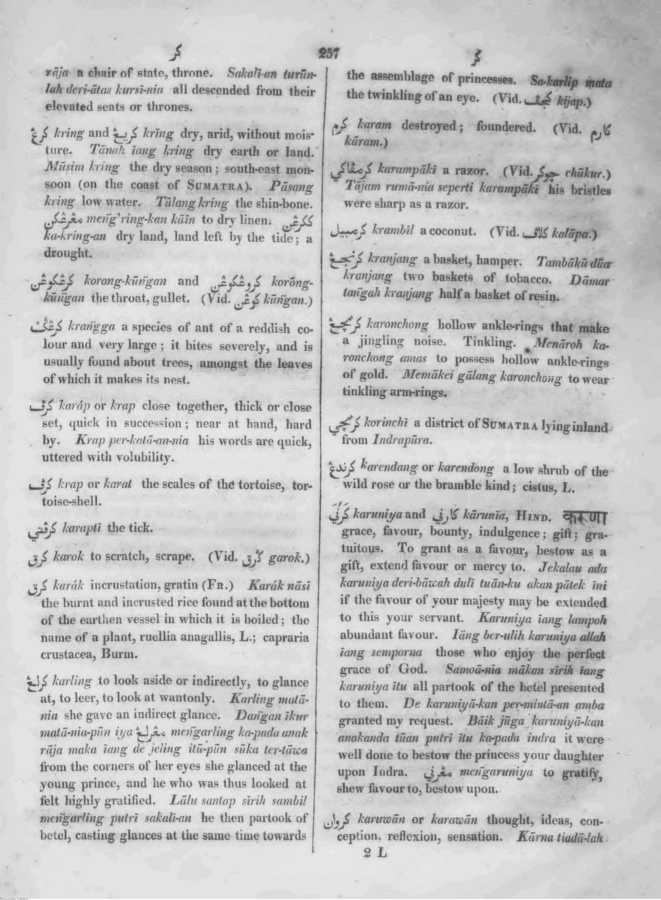 كر
257
كر
rāja a chair of state, throne. Sakali-an turūn-
lah deri-ātas kursī-nia all descended from their
elevated seats or thrones.
kring and krīng dry, arid, without mois-
ture. Tānah īang kring dry earth or land.
Mūsim kring the dry season; south-east mon-
soon (on the coast of SUMATRA). Pāsang
kring low water. Tūlang kring the shin-bone.
meng'ring-kan kāin to dry linen.
ka-kring-an dry land, land left by the tide; a
drought.
korang-kūngan and korōng-
kūngan the throat, gullet. (Vid. kūngan.)
krangga a species of ant of a reddish co-
lour and very large; it bites severely, and is
usually found about trees, amongst the leaves
of which it makes its nest.
karāp or krap close together, thick or close
set, quick in succession; near at hand, hard
by. Krap per-katā-an-nia his words are quick,
uttered with volubility.
krap or karat the scales of the tortoise, tor-
toise-shell.
karapti the tick.
karok to scratch, scrape. (Vid. garok.)
karāk incrustation, gratin (FR.) Karāk nāsī
the burnt and incrusted rice found at the bottom
of the earthen vessel in which it is boiled; the
name of a plant, ruellia anagallis, L.; capraria
crustacea, Burm.
karling to look aside or indirectly, to glance
at, to leer, to look at wantonly. Karling matā-
nia she gave an indirect glance. Dangan īkur
matā-nia-pūn iya mengarling ka-pada anak
rāja maka īang de jeling itū-pūn sūka ter-tāwa
from the corners of her eyes she glanced at the
young prince, and he who was thus looked at
felt highly gratified. Lālu santap sīrih sambil
mengarling putrī sakali-an he then partook of
betel, casting glances at the same time towards
the assemblage of princesses. Sa-karlip mata
the twinkling of an eye. (Vid. kijap.)
كرم karam destroyed; foundered. (Vid. كارم
kāram.)
karampāki a razor. (Vid. chūkur.)
Tājam rumā-nia seperti karampāki his bristles
were sharp as a razor.
krambīl a coconut. (Vid. kalāpa.)
kranjang a basket, hamper. Tambākū dūa
kranjang two baskets of tobacco. Dāmar
tangah kranjang half a basket of resin.
karonchong hollow ankle-rings that make
a jingling noise. Tinkling. Menāroh ka-
ronchong amas to possess hollow ankle-rings
of gold. Memākei gālang karonchong to wear
tinkling arm-rings.
korinchi a district of SUMATRA lying inland
from Indrapūra.
karendang or karendong a low shrub of the
wild rose or the bramble kind; cistus, L.
karuniya and kārunīa, HIND. करुणा
grace, favour, bounty, indulgence; gift; gra-
tuitous. To grant as a favour, bestow as a
gift, extend favour or mercy to. Jekalau ada
karuniya deri-bāwah dulī tuān-ku akan pātek īni
if the favour of your majesty may be extended
to this your servant. Karuniya īang lampoh
abundant favour. Iāng ber-ulih karuniya allah
īang semporna those who enjoy the perfect
grace of God. Samoā-nia mākan sīrih īang
karuniya ītu all partook of the betel presented
to them. De karuniyā-kan per-mintā-an amba
granted my request. Bāik jūga karuniyā-kan
anakanda tūan putrī ītu ka-pada indra it were
well done to bestow the princess your daughter
upon Indra. mengaruniya to gratify,
shew favour to, bestow upon.
karuwān or karawān thought, ideas, con-
ception, reflexion, sensation. Kārna tiadā-lah
2 L